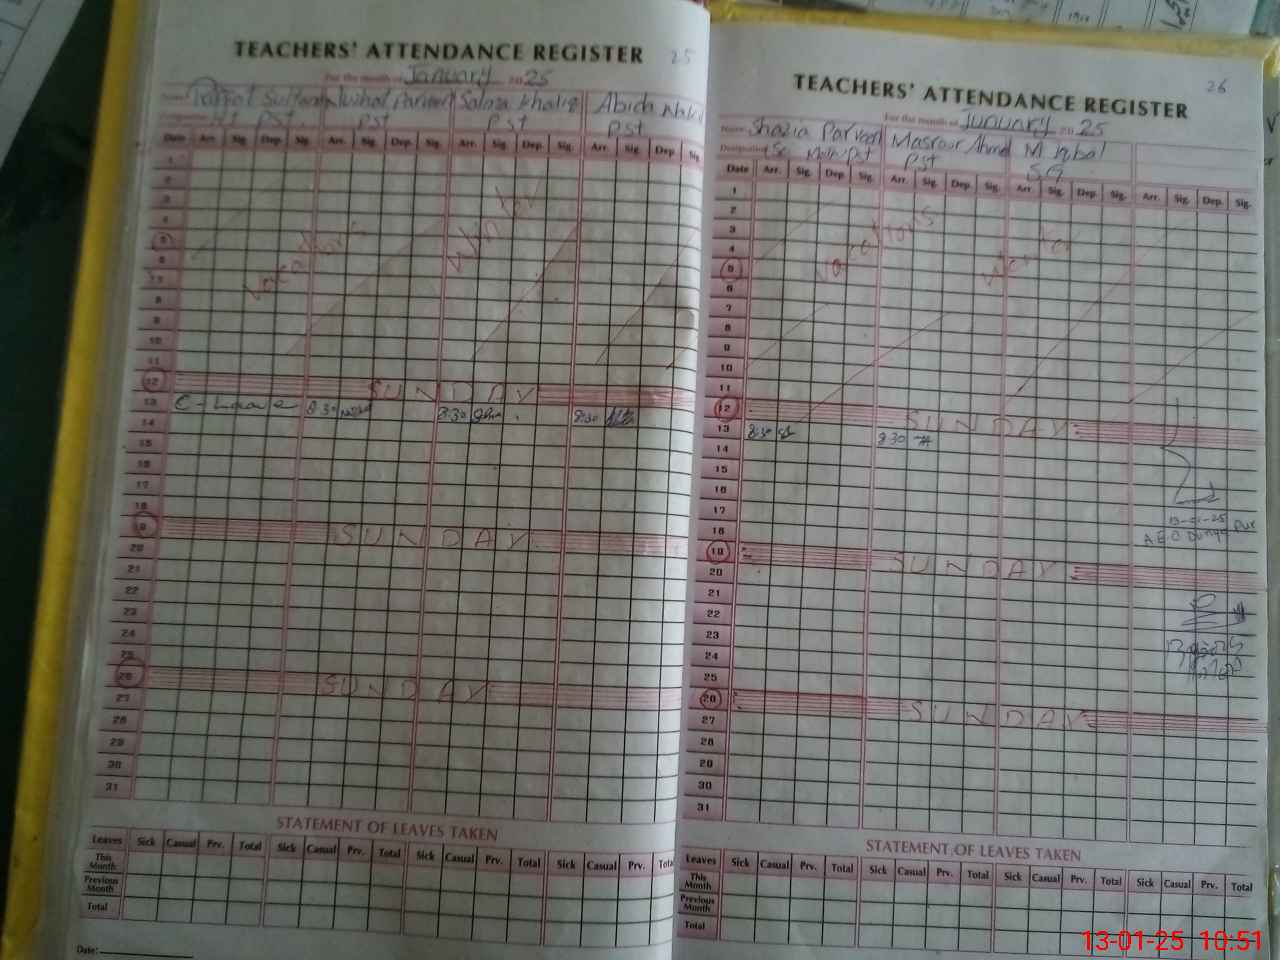 TEACHERS' ATTENDANCE REGISTER 25
For the month of January 2025
Name Sultana Parveen Salma Khaliq Abida
PST PST PST PST
Date Arr. Sig. Dep. Sig. Arr. Sig. Dep. Sig. Arr. Sig. Dep. Sig. Arr. Sig. Dep. Sig.
1
2
3
4
5
6
7
8
9
10
11
Vacations Winter
12 SUNDAY
13 C-Leave 8:30 8:30 8:30
14
15
16
17
18
19 SUNDAY
20
21
22
23
24
25
26 SUNDAY
27
28
29
30
31
STATEMENT OF LEAVES TAKEN
Leaves Sick Casual Prv. Total Sick Casual Prv. Total Sick Casual Prv. Total Sick Casual Prv. Total
This Month
Previous Month
Total
Date:
TEACHERS' ATTENDANCE REGISTER 26
For the month of January 2025
Name Shazia Parveen Masroor Ahmed M Iqbal
Designation PST
Date Arr. Sig. Dep. Sig. Arr. Sig. Dep. Sig. Arr. Sig. Dep. Sig. Arr. Sig. Dep. Sig.
1
2
3
4
5
6
7
8
9
10
11
Vacations Winter
12 SUNDAY
13 8:30 8:30
14
15
16
17
18
13-01-25
A.E.O
19 SUNDAY
20
21
22
23
24
25
26 SUNDAY
27
28
29
30
31
STATEMENT OF LEAVES TAKEN
Leaves Sick Casual Prv. Total Sick Casual Prv. Total Sick Casual Prv. Total Sick Casual Prv. Total
This Month
Previous Month
Total
13-01-25 10:51